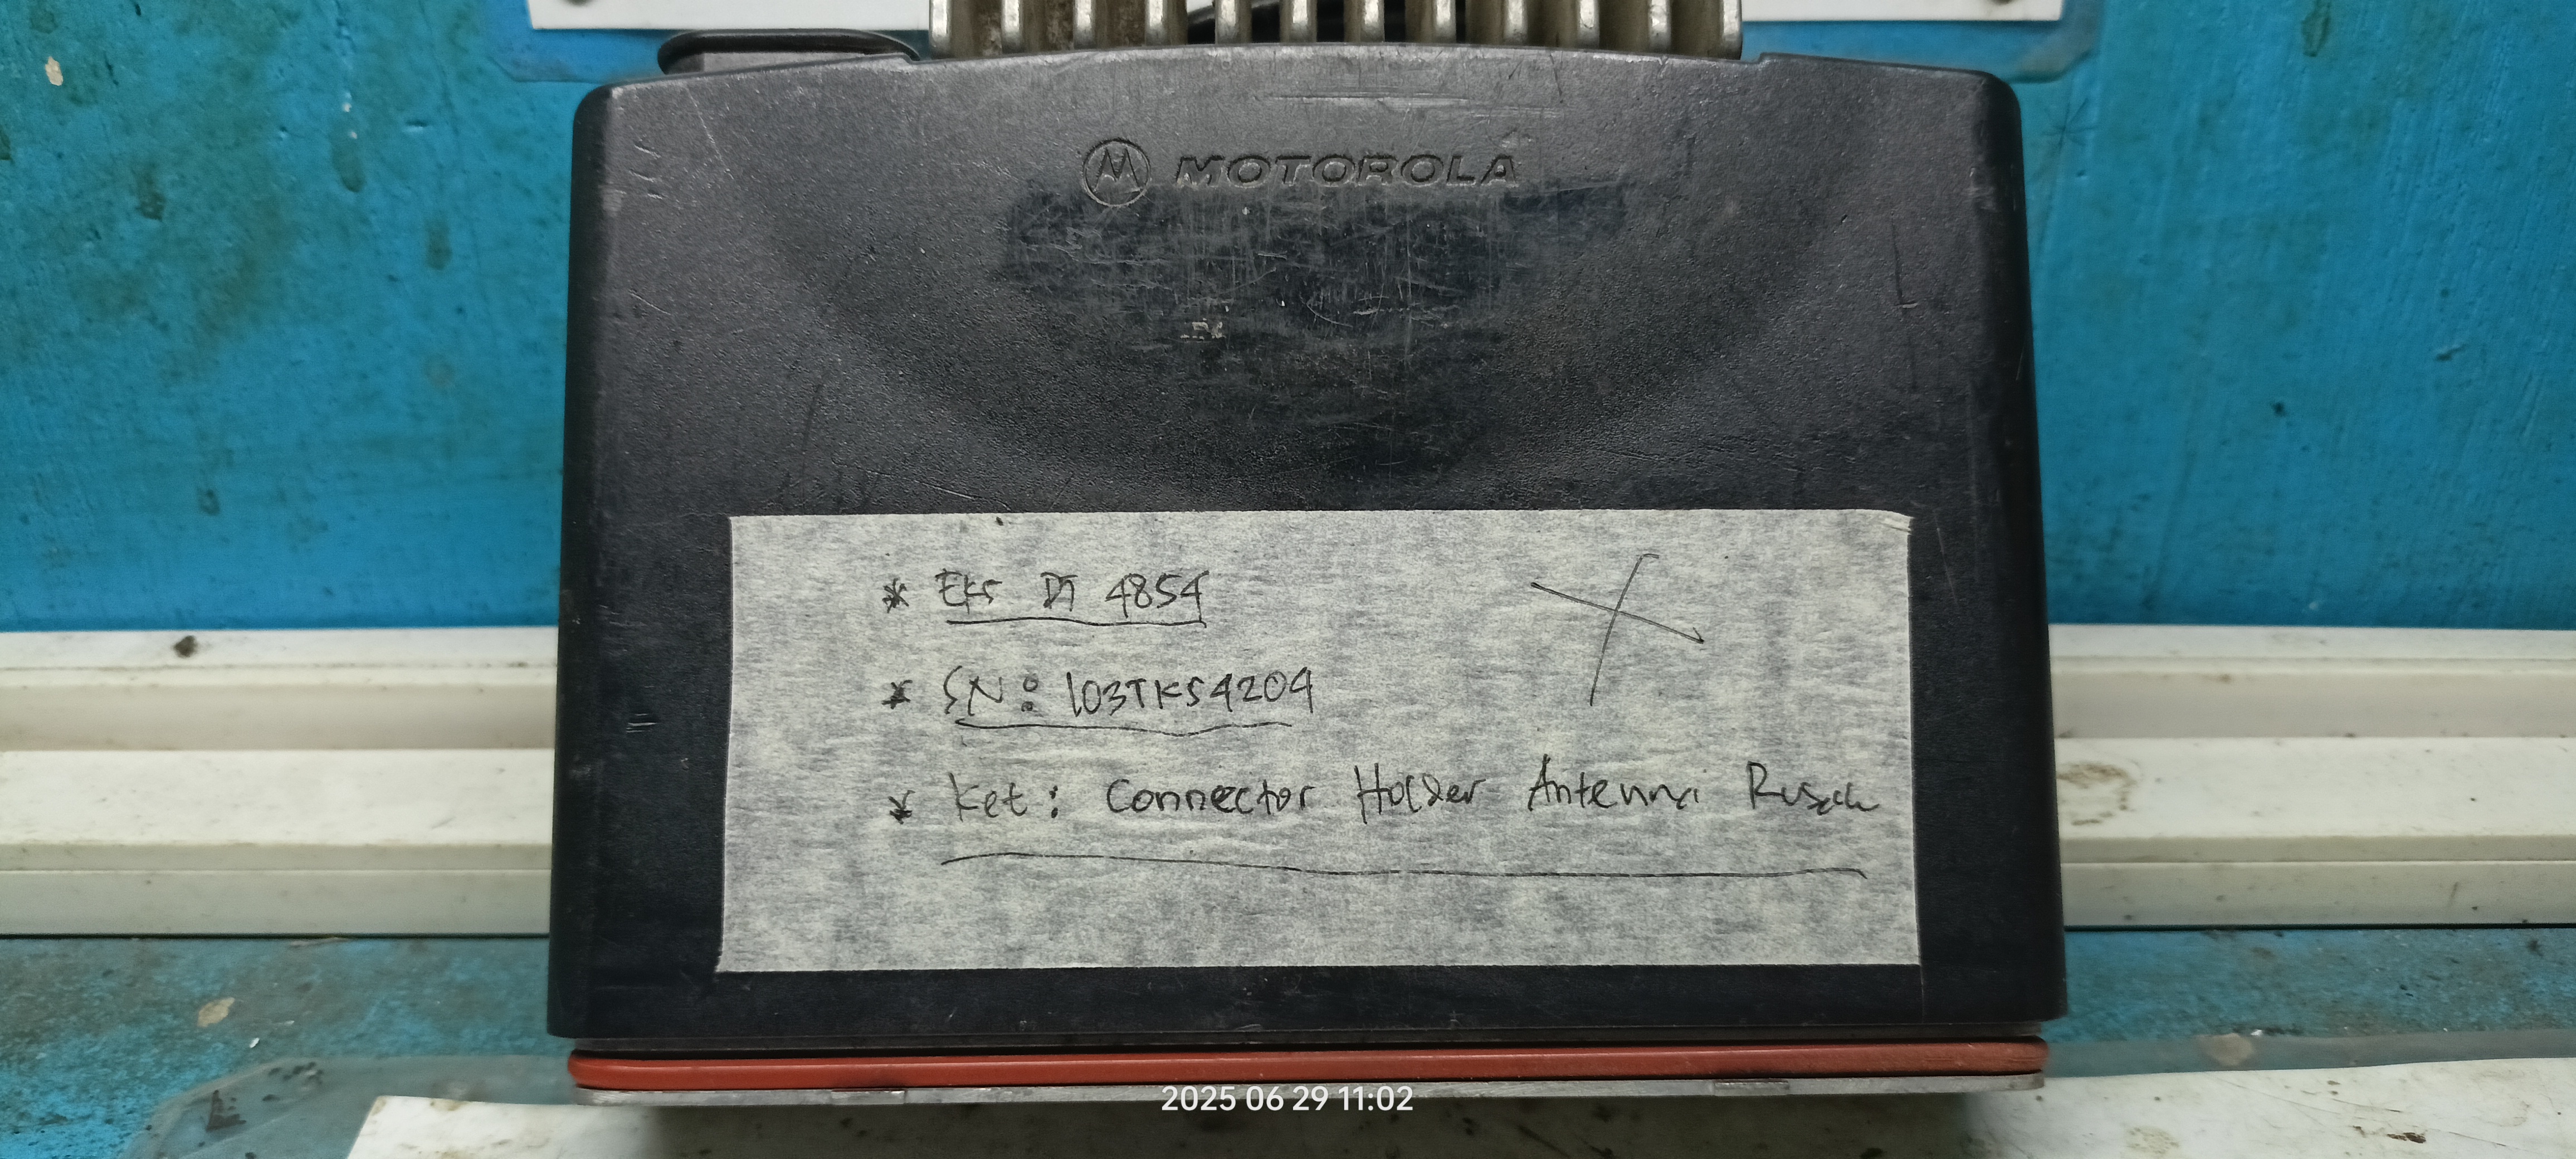 MOTOROLA
* Eks DT 4854
* SN: 103TKS4204
* Ket: Connector Holder Antenna Rusak
2025 06 29 11:02